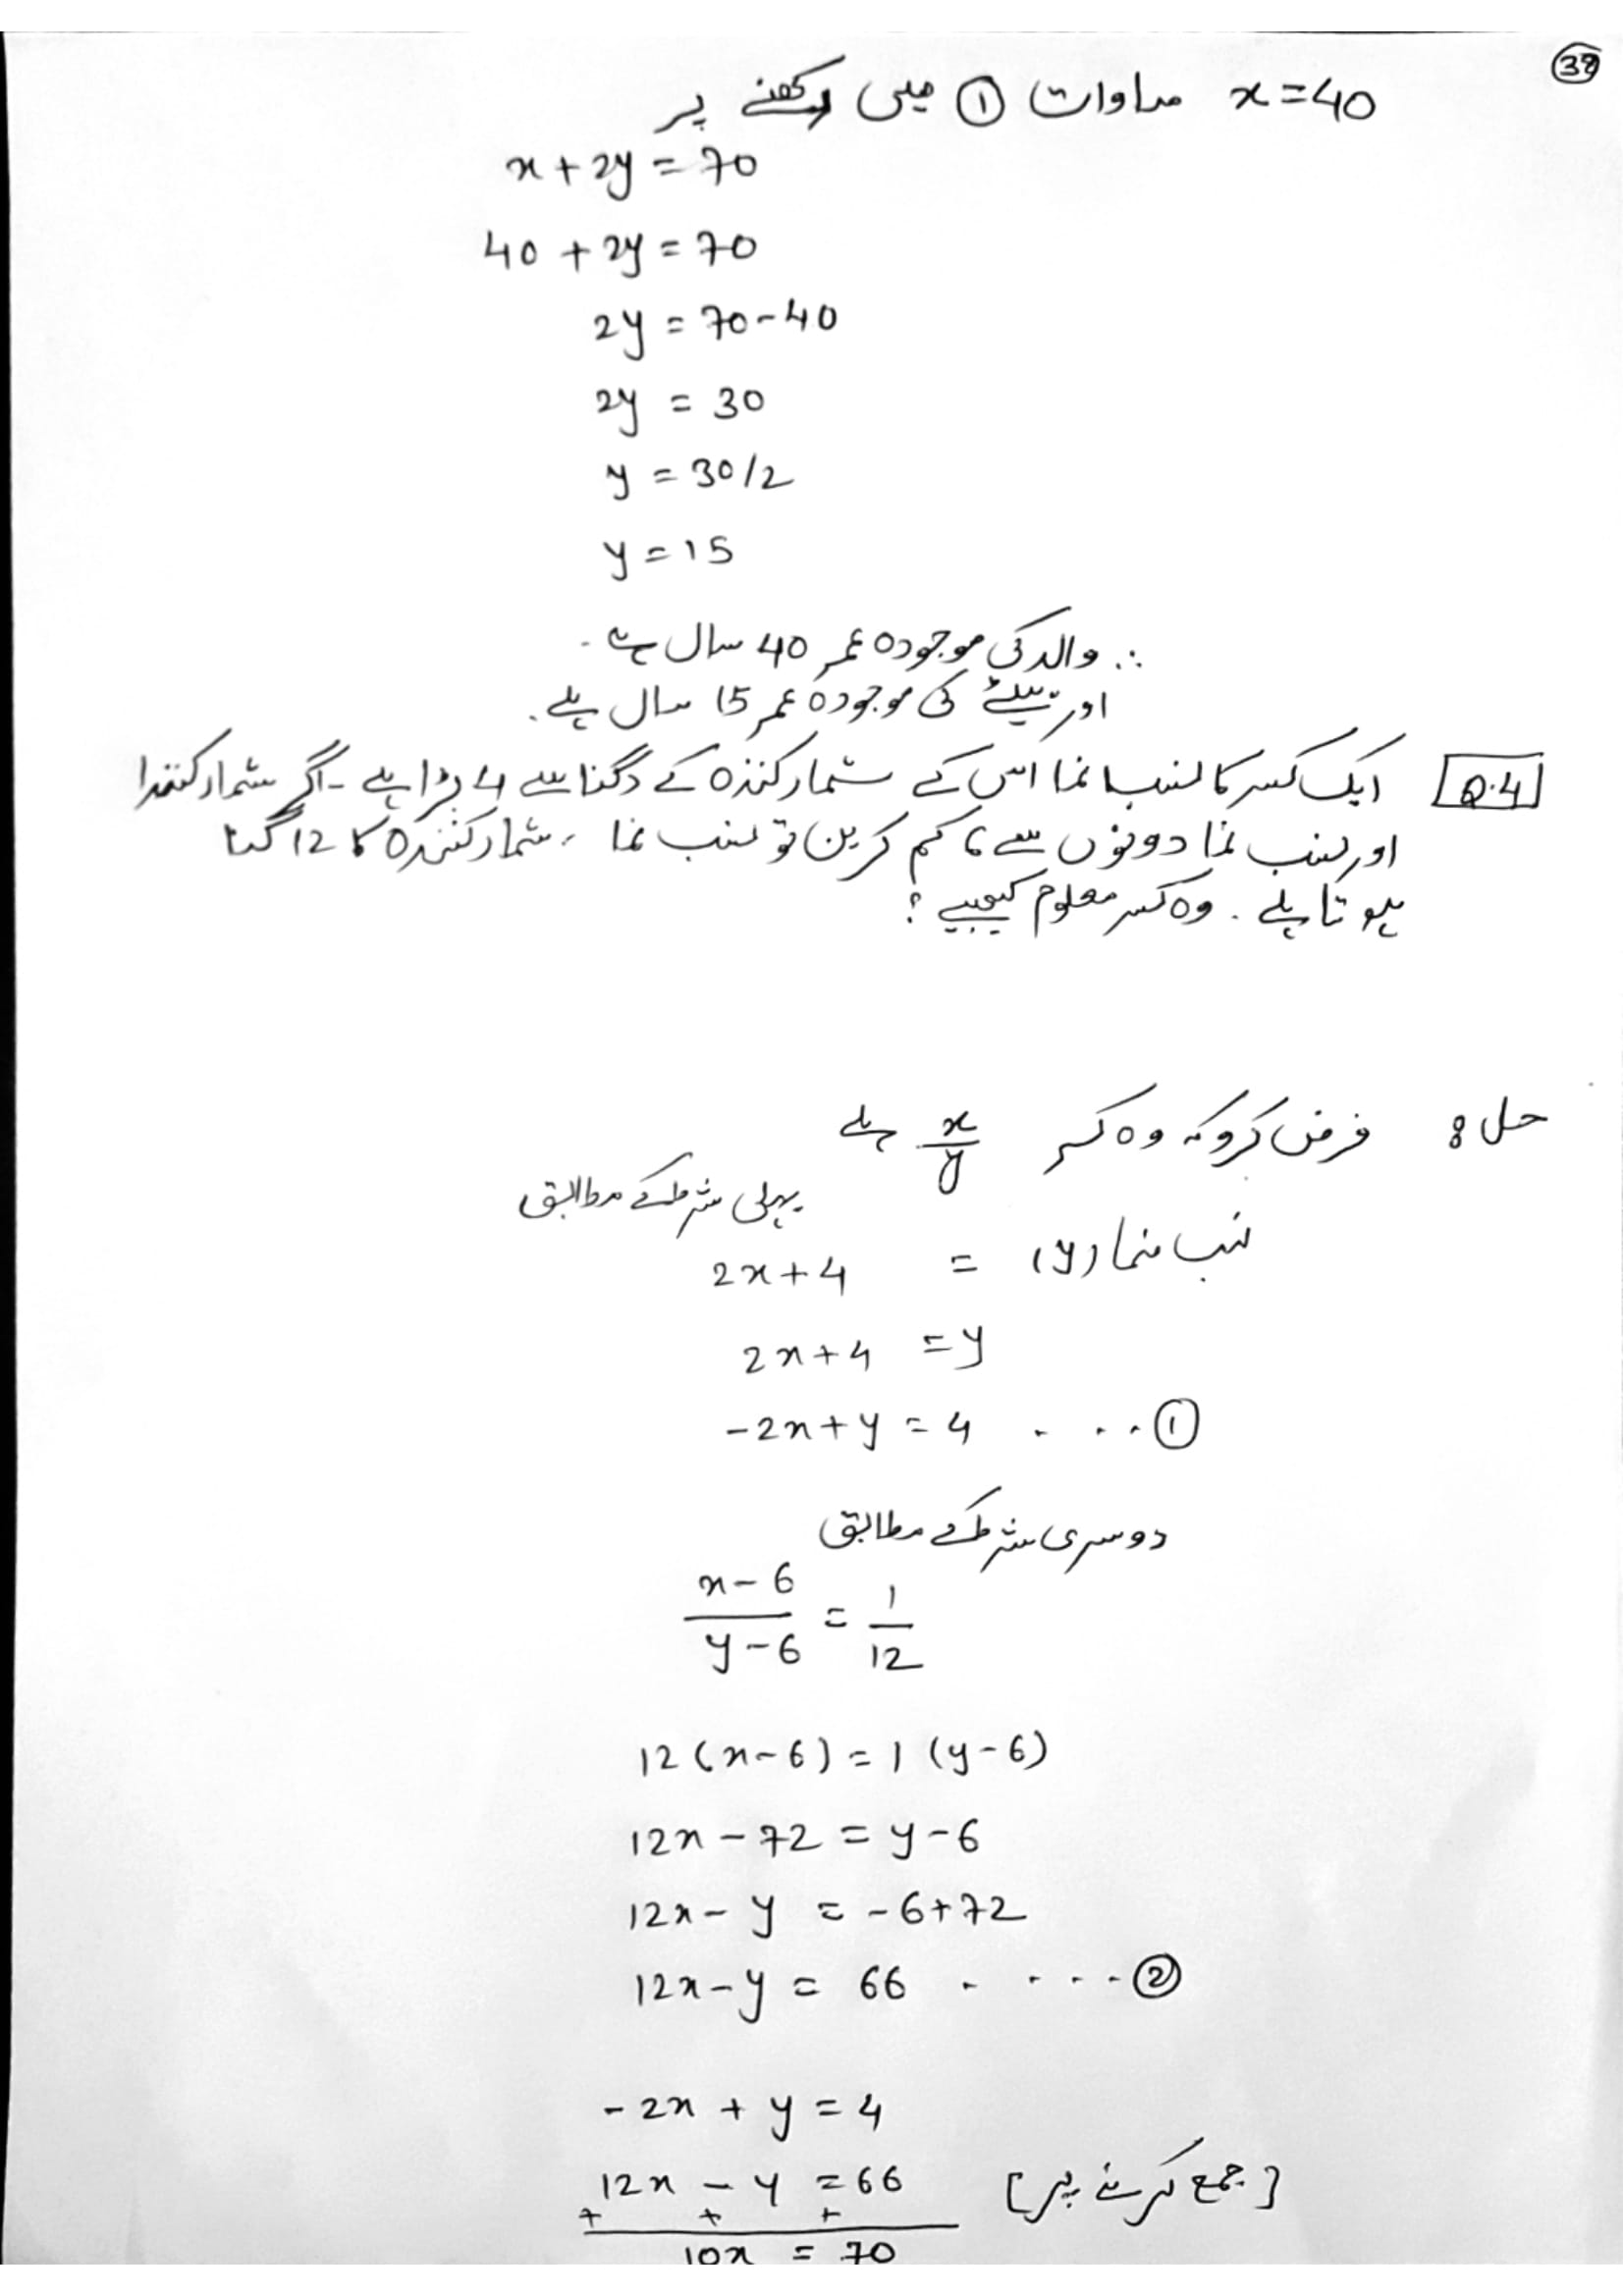 38
x=40 مساوات ① میں رکھنے پر
x + 2y = 70
40 + 2y = 70
2y = 70-40
2y = 30
y = 30/2
y = 15
∴ والد کی موجودہ عمر 40 سال ہے۔
اور بیٹے کی موجودہ عمر 15 سال ہے۔
Q.4 ایک کسر کا نسب نما اس کے شمار کنندہ کے دگنا سے 4 بڑا ہے - اگر شمار کنندا
اور نسب نما دونوں سے 6 کم کریں تو نسب نما ، شمار کنندہ کا 12 گنا
ہوتا ہے . وہ کسر معلوم کیجیے ؟
حل : فرض کرو کہ وہ کسر x/y ہے
پہلی شرط کے مطابق
2x+4 = نسب نما (y)
2x+4 = y
-2x+y = 4 . . . ①
دوسری شرط کے مطابق
x-6/y-6 = 1/12
12(x-6) = 1(y-6)
12x - 72 = y-6
12x - y = -6+72
12x-y = 66 . . . . ②
-2x + y = 4
12x - y = 66 [جمع کرنے پر]
+ + +
10x = 70